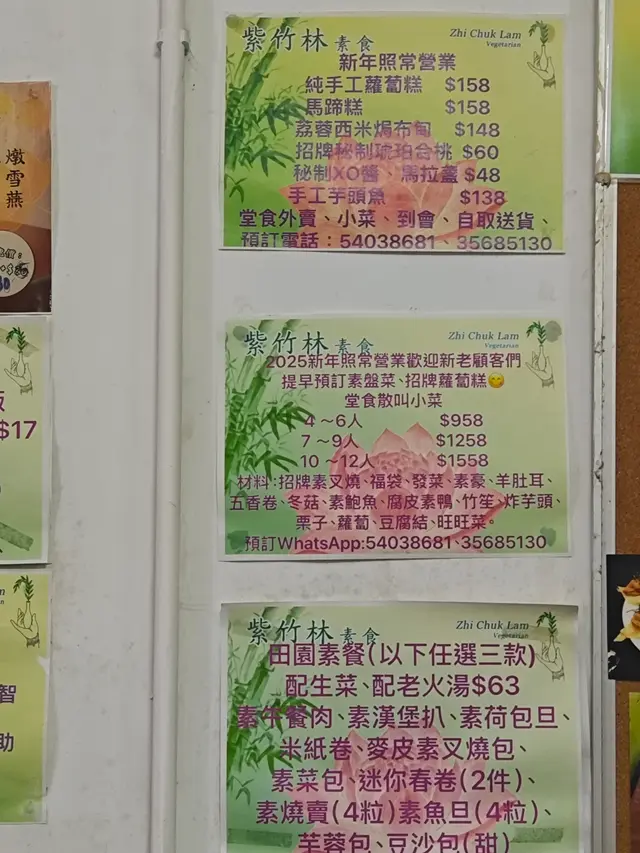 燉雪燕
$17
智
助
紫竹林素食
Zhi Chuk Lam
Vegetarian
新年照常營業
純手工蘿蔔糕 $158
馬蹄糕 $158
荔蓉西米焗布甸 $148
招牌秘制琥珀合桃 $60
秘制XO醬、馬拉盞 $48
手工芋頭魚 $138
堂食外賣、小菜、到會、自取送貨、
預訂電話：54038681、35685130
紫竹林素食
Zhi Chuk Lam
Vegetarian
2025新年照常營業歡迎新老顧客們
提早預訂素盤菜、招牌蘿蔔糕😋
堂食散叫小菜
4～6人 $958
7～9人 $1258
10～12人 $1558
材料:招牌素叉燒、福袋、發菜、素豪、羊肚耳、
五香卷、冬菇、素鮑魚、腐皮素鴨、竹笙、炸芋頭、
栗子、蘿蔔、豆腐結、旺旺菜。
預訂WhatsApp:54038681、35685130
紫竹林素食
Zhi Chuk Lam
Vegetarian
田園素餐(以下任選三款)
配生菜、配老火湯$63
素午餐肉、素漢堡扒、素荷包旦、
米紙卷、麥皮素叉燒包、
素菜包、迷你春卷(2件)、
素燒賣(4粒)素魚旦(4粒)、
芋蓉包、豆沙包(甜)